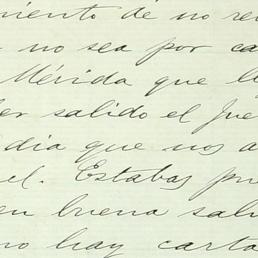 miento de no re
no sea por ca
Mérida que l
er salido el jue
dia que nos a
el. Estabas pu
en buena salu
no hay carta